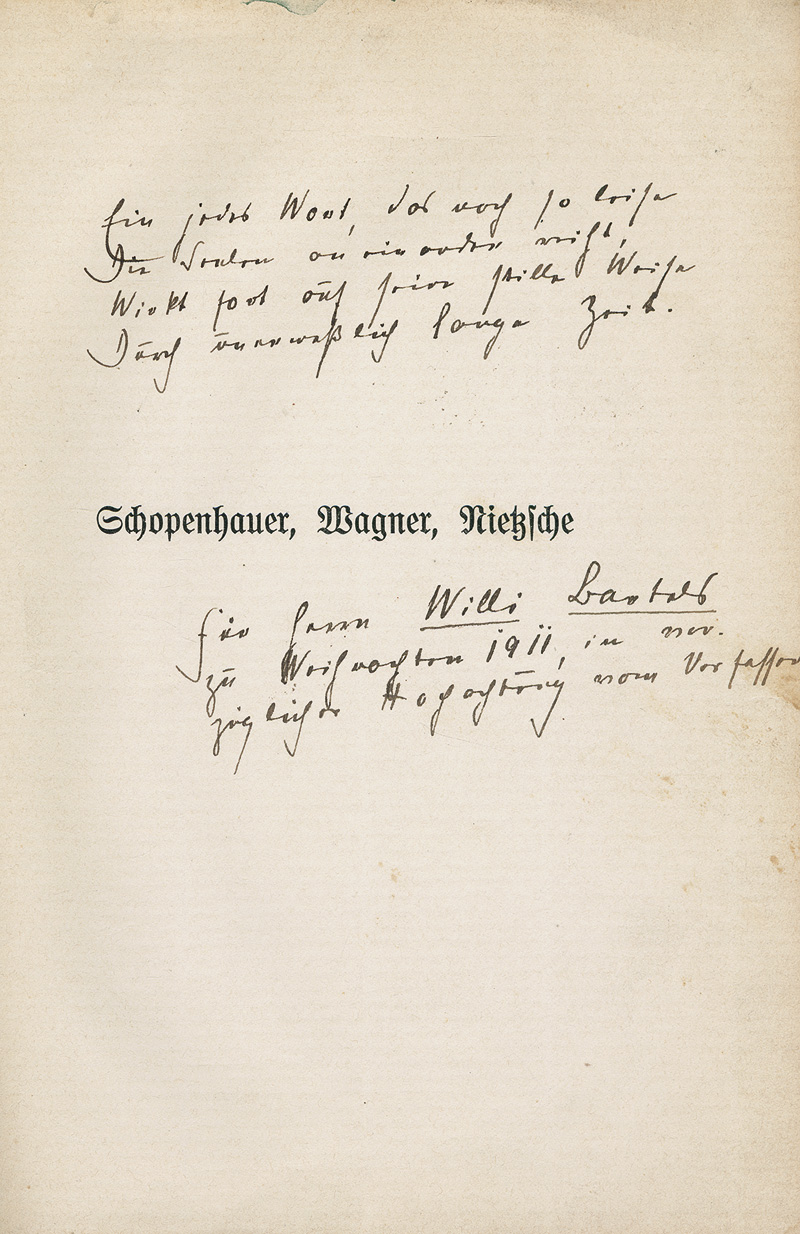 Ein jedes Wort, das noch so leise
Die Seelen an einander reiht,
Wirkt fort auf seine stille Weise
Durch unermeßlich lange Zeit.
Schopenhauer, Wagner, Nietzsche
für Herrn Willi Bartels
zu Weihnachten 1911, in vor-
züglicher Hochachtung vom Verfasser